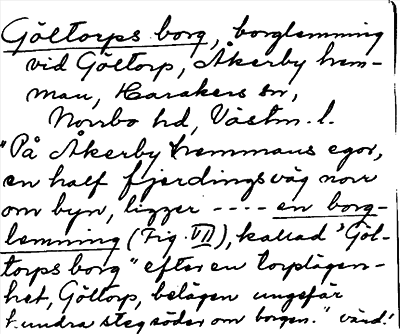 Göltorps borg, borglemning
vid Göltorp, Åkerby hem-
man, Harakers sn,
Norrbo hd, Västm. l.
"På Åkerby hemmans egor,
en half fjerdingsväg norr
om byn, ligger ---- en borg-
lemning (Fig. VII), kallad 'Göl-
torps borg" efter en torplägen-
het, Göltorp, belägen ungefär
hundra steg söder om borgen."